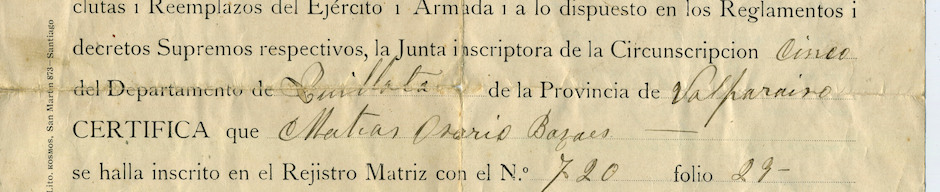 clutas i Reemplazos del Ejército i Armada i a lo dispuesto en los Reglamentos i
decretos Supremos respectivos, la Junta inscriptora de la Circunscripcion Cinco
del Departamento de Quillota de la Provincia de Valparaiso
CERTIFICA que Matias Osorio Bazaes
se halla inscrito en el Rejistro Matriz con el N.º 720 folio 29-
Lito. KOSMOS, San Martin 873 - Santiago